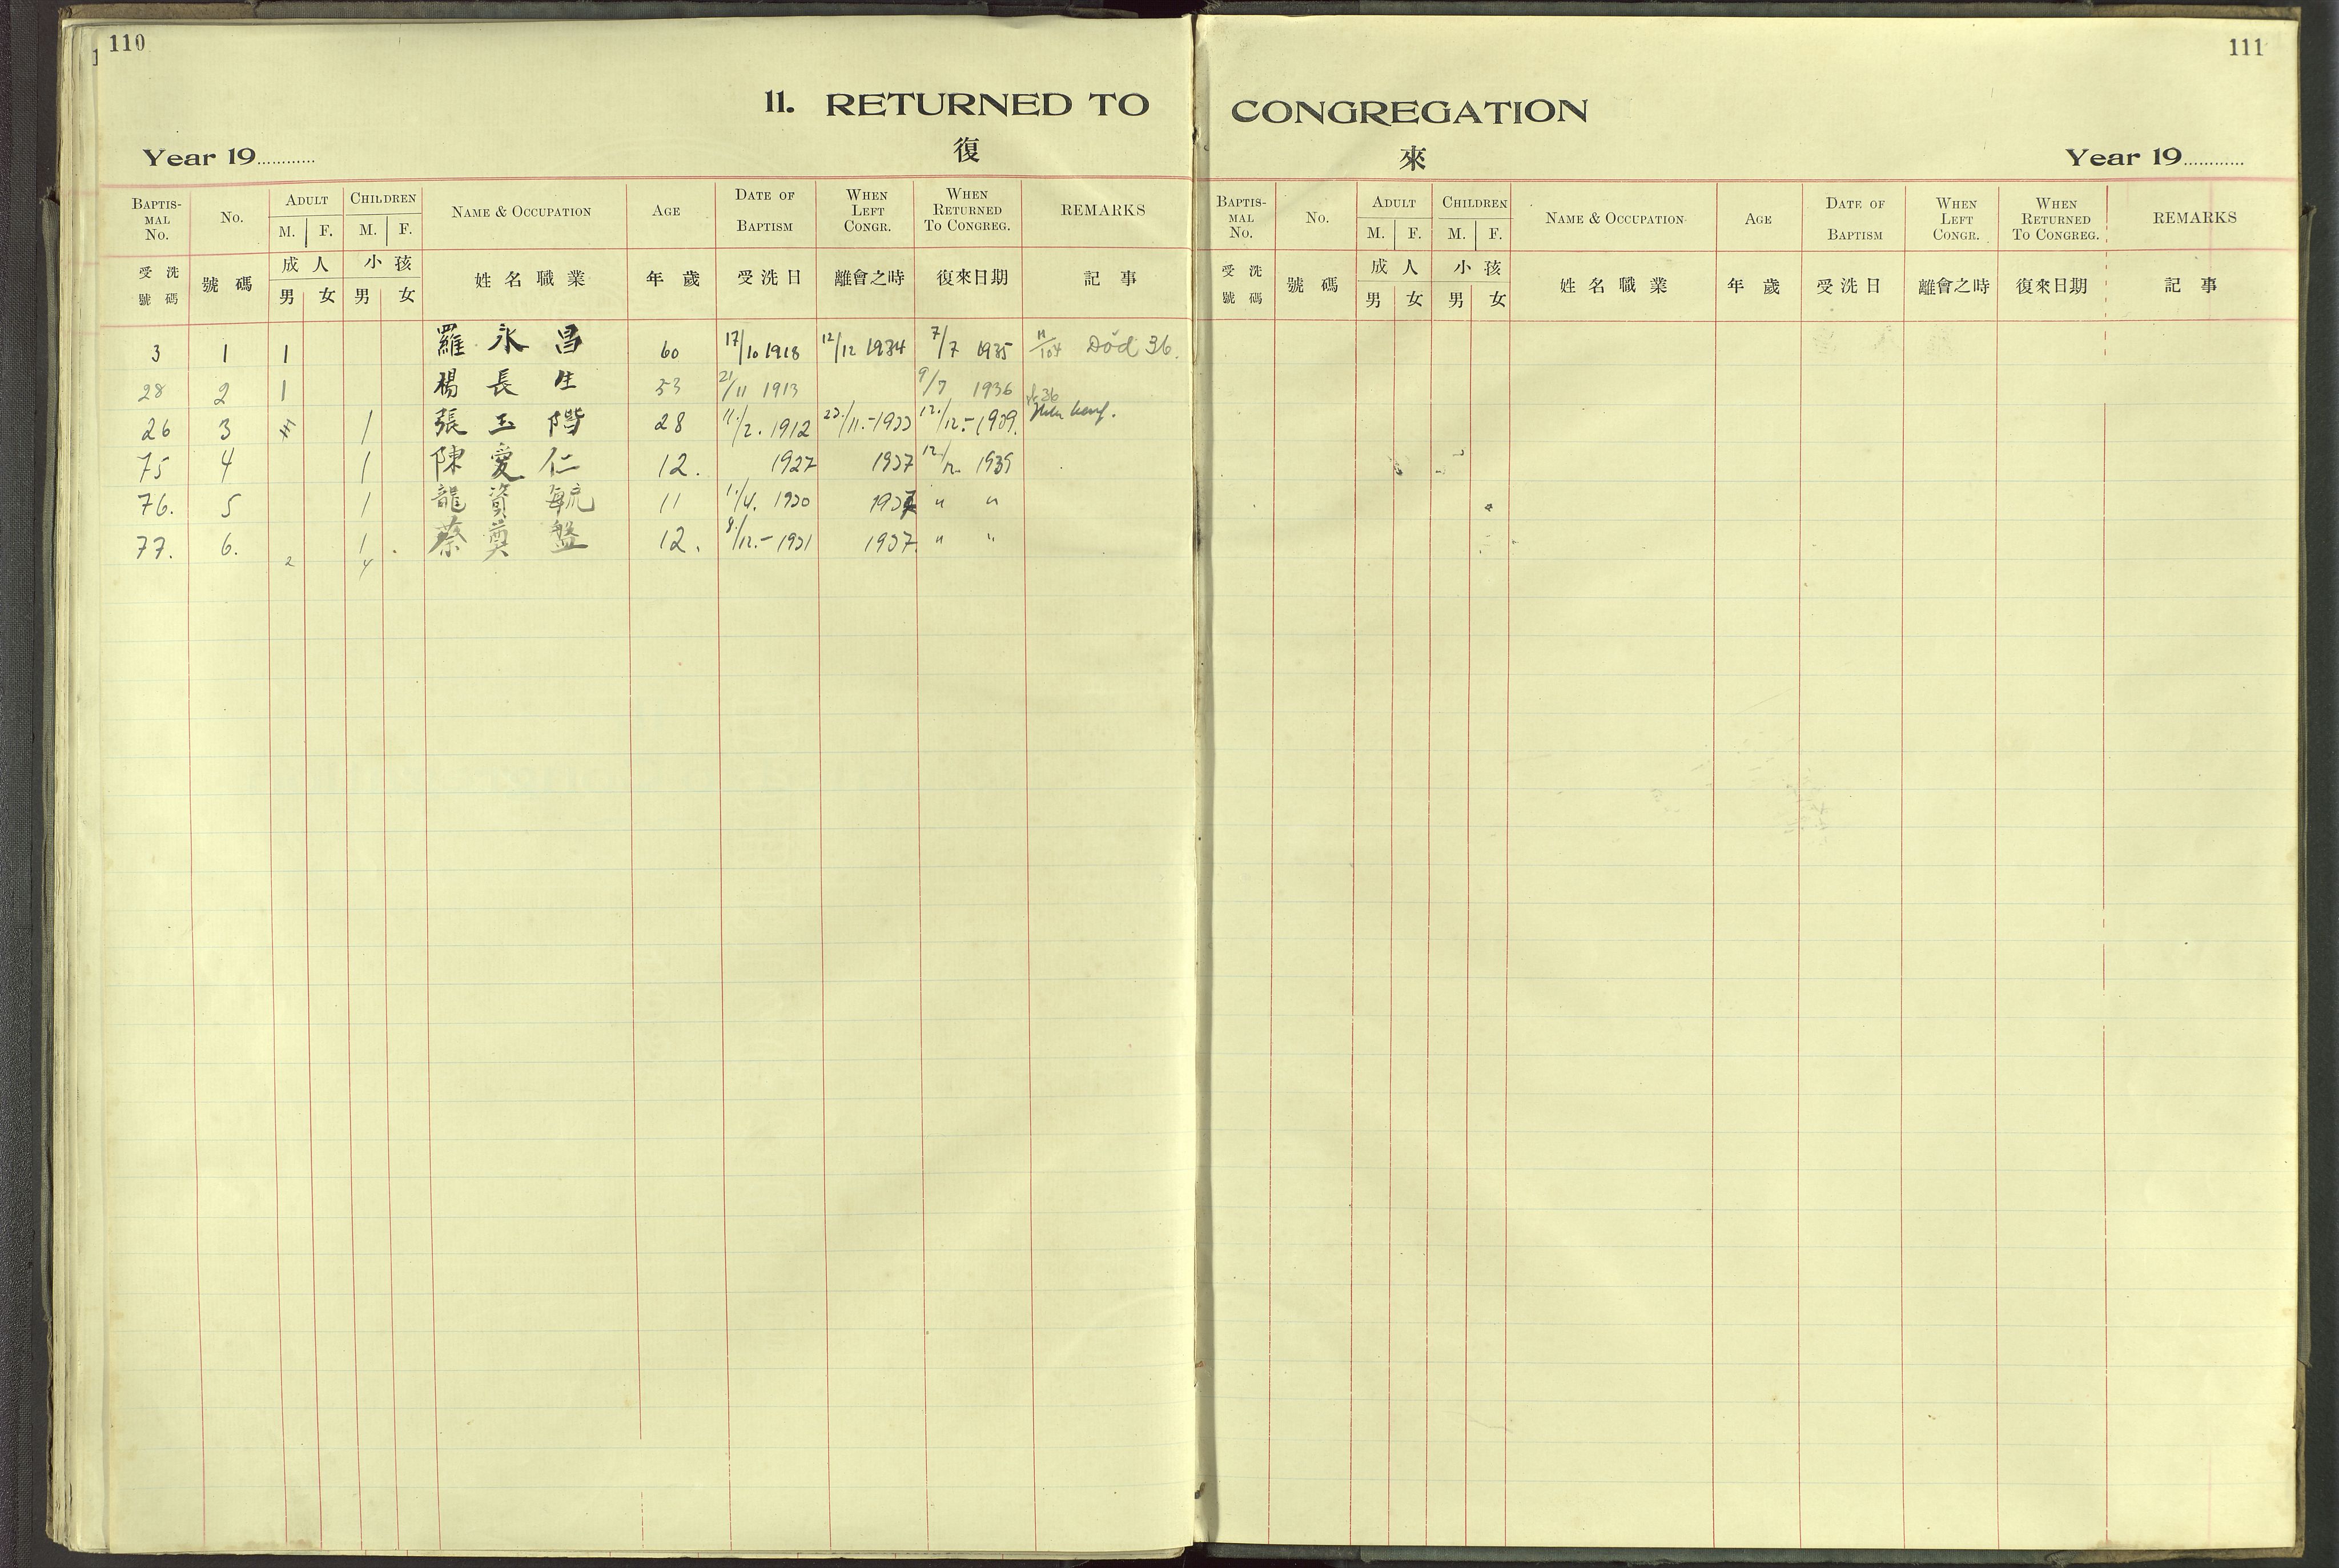 110
11. RETURNED TO
復
Year 19............
BAPTIS-MAL No. No. ADULT M. F. CHILDREN M. F. NAME & OCCUPATION AGE DATE OF BAPTISM WHEN LEFT CONGR. WHEN RETURNED TO CONGREG. REMARKS
受洗號碼 號碼 成人 男 女 小孩 男 女 姓名職業 年歲 受洗日 離會之時 復來日期 記事
3 1 1 羅永昌 60 17/10 1918 12/12 1934 7/7 1935 11/104 Död 36.
28 2 1 楊長生 53 21/11 1913 9/7 1936
26 3 1 張玉階 28 11./2. 1912 23./11.-1933 12./12.-1939.
75 4 1 陳愛仁 12. 1927 1937 12./12. 1939
76. 5 1 龍資毓 11 1./4. 1930 1937 " "
77. 6. 1 . 蔡奠盤 12. 9./12.- 1931 1937. " "
2 4
111
CONGREGATION
來
Year 19............
BAPTIS-MAL No. No. ADULT M. F. CHILDREN M. F. NAME & OCCUPATION AGE DATE OF BAPTISM WHEN LEFT CONGR. WHEN RETURNED TO CONGREG. REMARKS
受洗號碼 號碼 成人 男 女 小孩 男 女 姓名職業 年歲 受洗日 離會之時 復來日期 記事